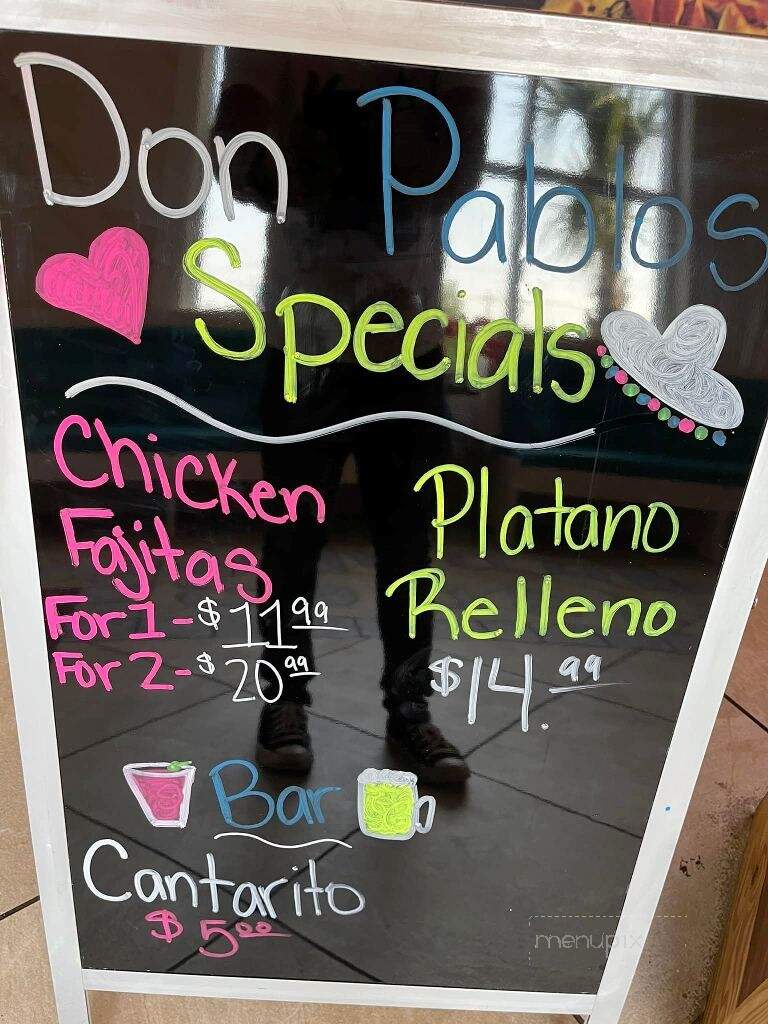 Don Pablos
Specials
Chicken
Fajitas
For 1 - $11.99
For 2 - $20.99
Platano
Relleno
$14.99
Bar
Cantarito
$5.00
menupix